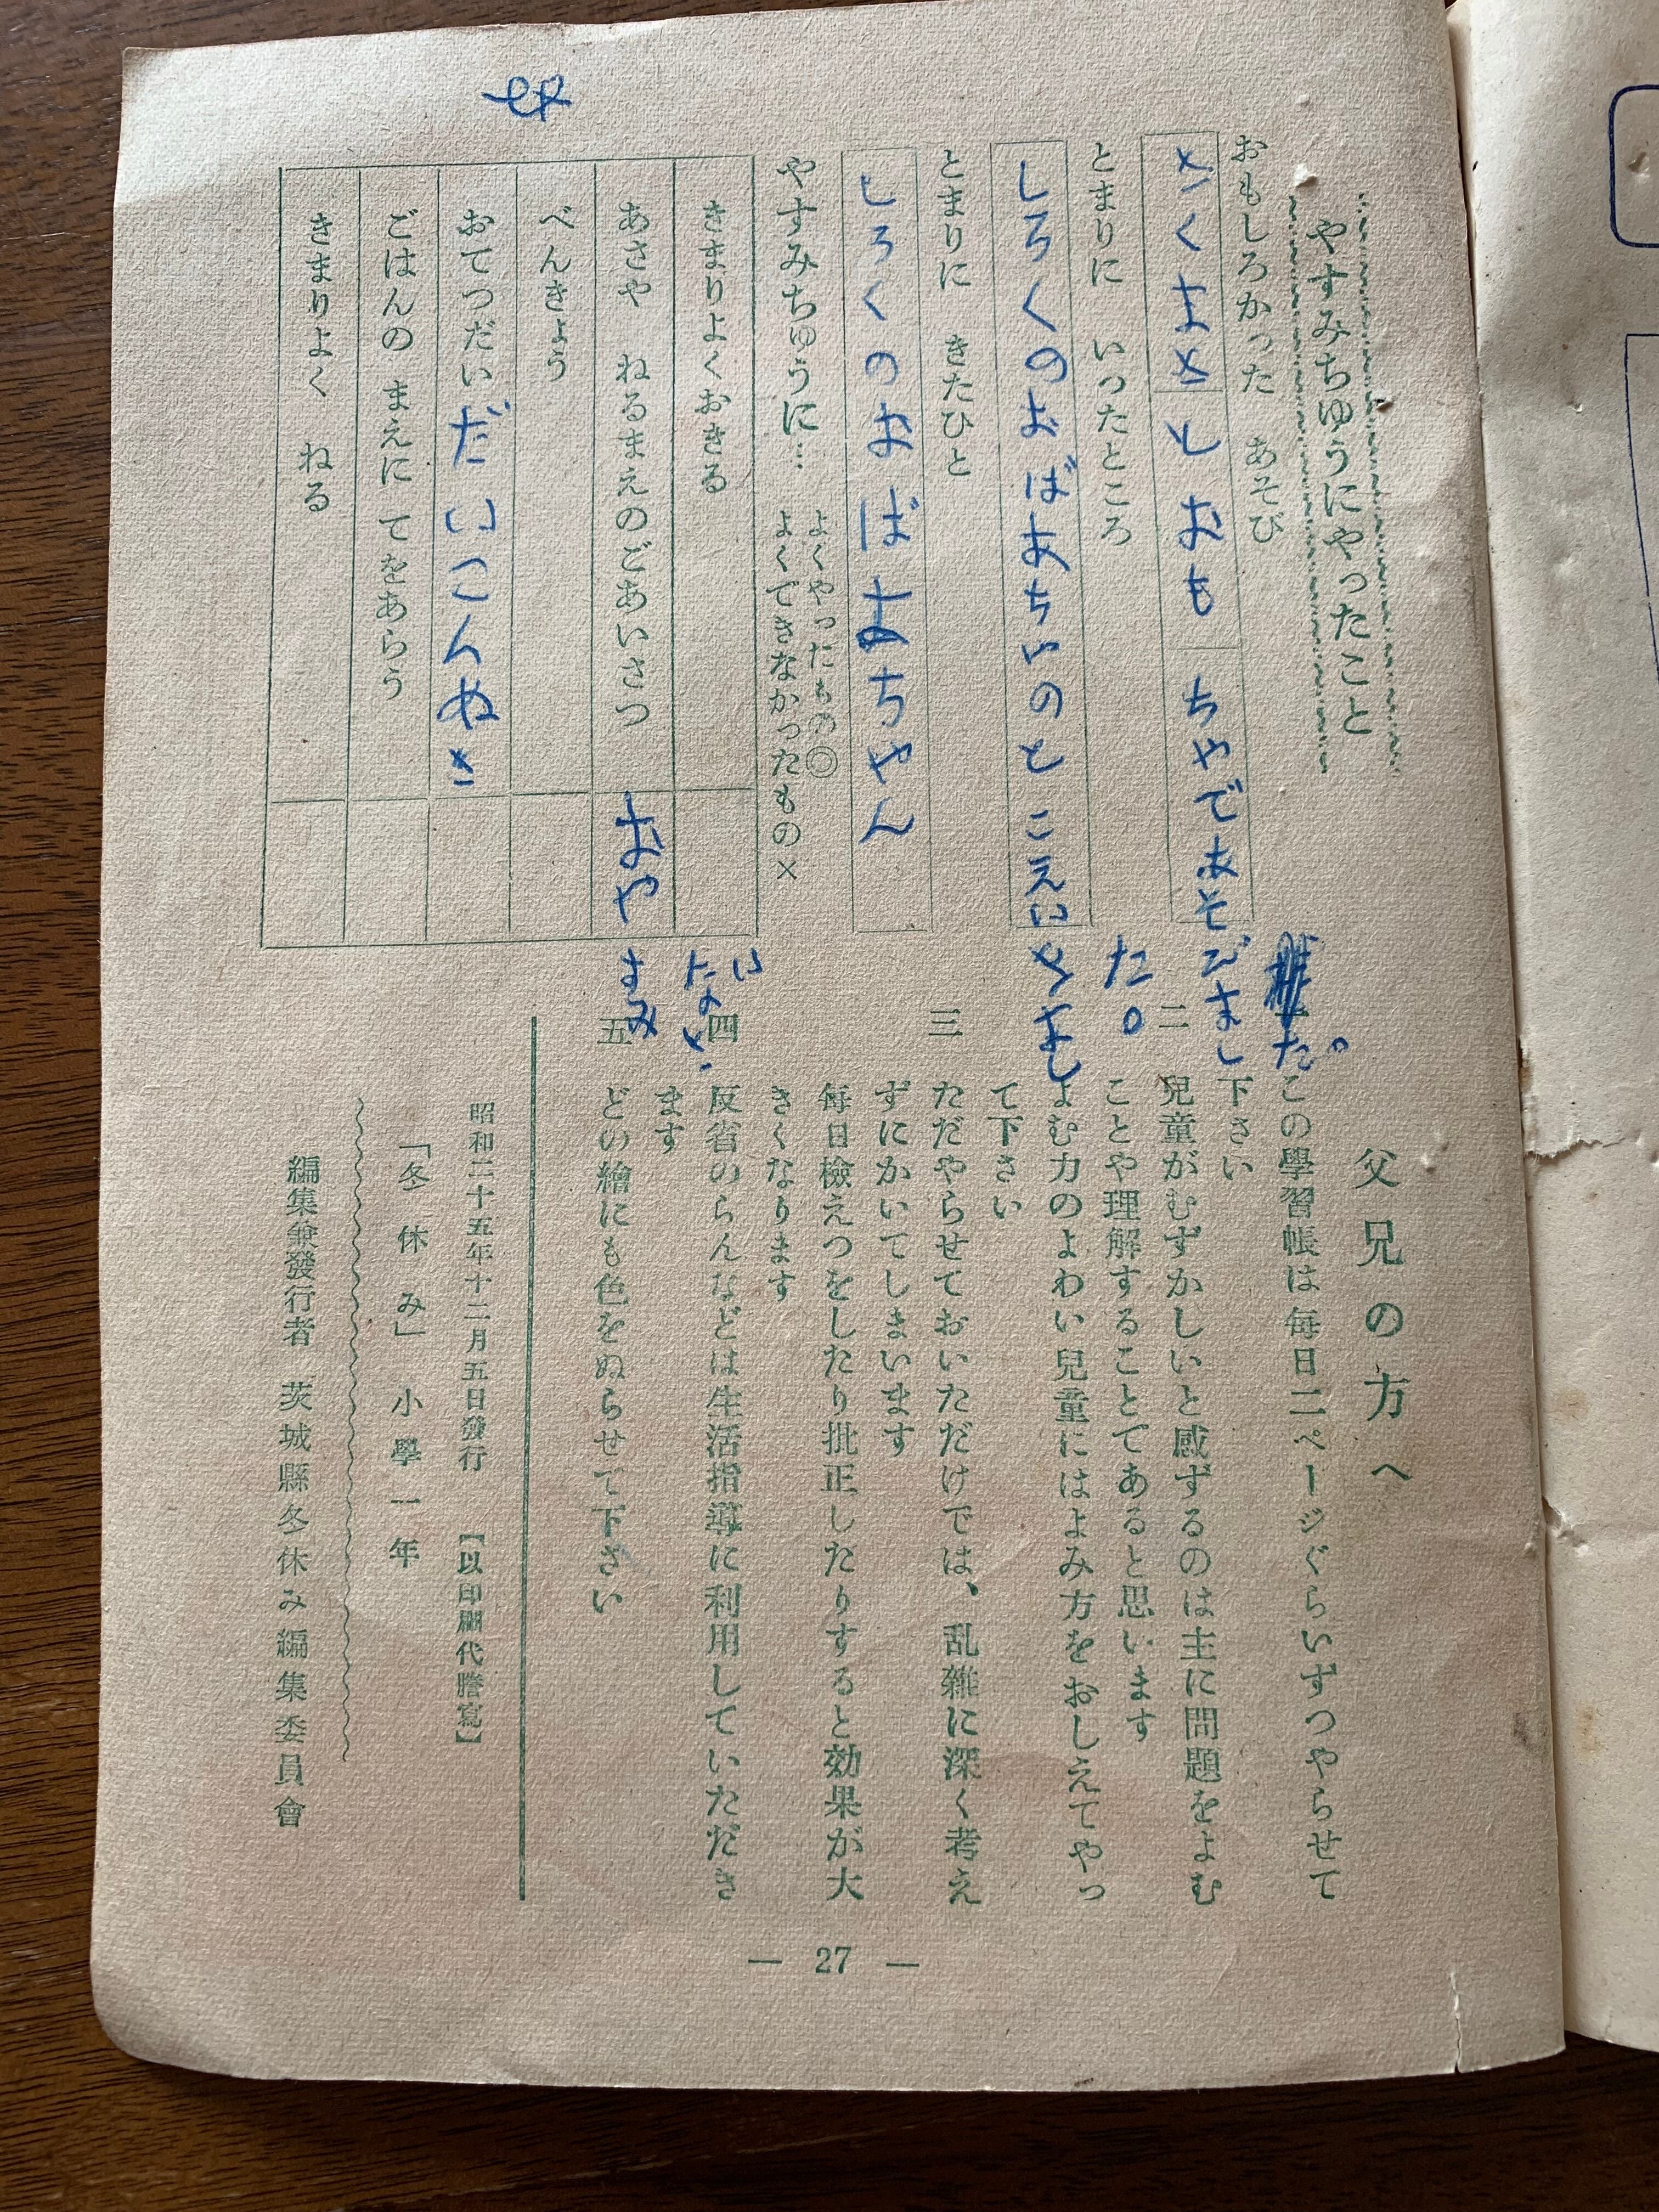 やすみちゅうにやったこと
おもしろかった あそび
しおも ちやであそびました。
とまりに いったところ
しろくのおばあちいのところえいきました。
とまりに きたひと
しろくのおばあちやん
やすみちゅうに… よくやったもの◎
よくできなかったもの×
きまりよくおきる
あさや ねるまえのごあいさつ おやすみなさい
べんきょう
おてつだい だいこんぬき
ごはんの まえに てをあらう
きまりよく ねる
父兄の方へ
この學習帳は毎日二ページぐらいずつやらせて
下さい
二 兒童がむずかしいと感ずるのは主に問題をよむ
ことや理解することであると思います
よむ力のよわい兒童にはよみ方をおしえてやっ
て下さい
三 ただやらせておいただけでは、乱雑に深く考え
ずにかいてしまいます
毎日檢えつをしたり批正したりすると効果が大
きくなります
四 反省のらんなどは生活指導に利用していただき
ます
五 どの繪にも色をぬらせて下さい
昭和二十五年十二月五日發行 【以印刷代謄寫】
「冬休み」 小學一年
編集兼發行者 茨城縣冬休み編集委員會
— 27 —